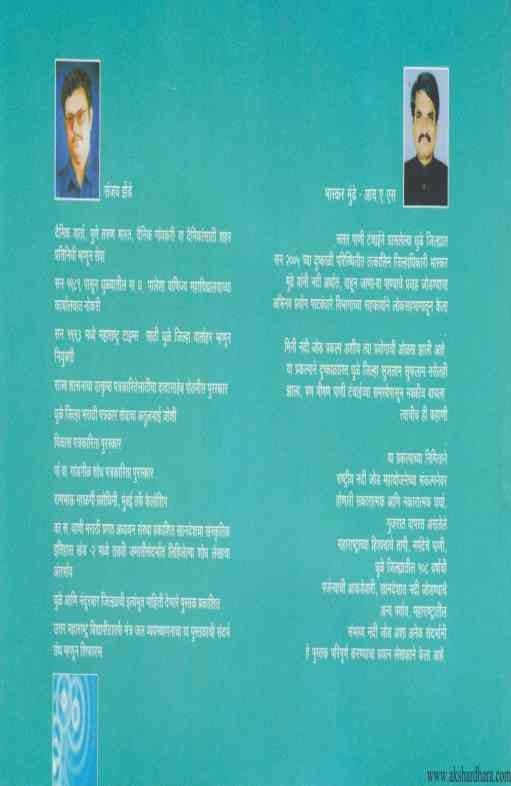 संजय झेंडे
दैनिक वार्ता, पुणे तरुण भारत, दैनिक गांवकरी या दैनिकांसाठी शहर
प्रतिनिधी म्हणून सेवा
सन १९८९ पासून धुळ्यातील ना. व. पालेशा वाणिज्य महाविद्यालयाच्या
कार्यालयात नोकरी
सन १९९३ मध्ये महाराष्ट्र टाइम्स साठी धुळे जिल्हा वार्ताहर म्हणून
नियुक्ती
राज्य शासनाचा उत्कृष्ठ पत्रकारितेसाठीचा दादासाहेब पोतनीस पुरस्कार
धुळे जिल्हा मराठी पत्रकार संघाचा अतुलभाई जोशी
विकास पत्रकारिता पुरस्कार
शोध पत्रकारिता पुरस्कार
रामभाऊ म्हाळगी प्रबोधिनी, मुंबई तर्फे फेलोशिप
का. स. वाणी मराठी प्रगत अध्ययन संस्था प्रकाशित खानदेशचा सांस्कृतिक
इतिहास खंड -२ मध्ये रावळी जमातीसंदर्भात लिहिलेल्या शोध लेखाचा
अंतर्भाव
धुळे आणि नंदुरबार जिल्ह्याची इत्यंभूत माहिती देणारे पुस्तक प्रकाशित
उत्तर महाराष्ट्र विद्यापीठातर्फे मंत्र जल व्यवस्थापनाचा या पुस्तकाची संदर्भ
ग्रंथ म्हणून शिफारस
भास्कर मुंढे - आय ए एस
सतत पाणी टंचाईने ग्रासलेल्या धुळे जिल्ह्यात
सन २००५ च्या दुष्काळी परिस्थितीत तत्कालिन जिल्हाधिकारी भास्कर
मुंढे यांनी नदी अर्थात, वाहून जाणाऱ्या पाण्याचे प्रवाह जोडण्याचा
अभिनव प्रयोग पाटबंधारे विभागाच्या सहकार्याने लोकसहभागातून केला
मिनी नदी जोड प्रकल्प अशीच त्या प्रयोगाची ओळख झाली आहे.
या प्रकल्पाने दुष्काळग्रस्त धुळे जिल्हा सुजलाम सुफलाम नसेलही
झाला, पण भीषण पाणी टंचाईच्या समस्येपासून नक्कीच वाचला.
त्याचीच ही कहाणी
या प्रकल्पाच्या निमित्ताने
राष्ट्रीय नदी जोड महायोजनेच्या संकल्पनेवर
होणारी सकारात्मक आणि नकारात्मक चर्चा,
गुजरात वापरत असलेले
महाराष्ट्राच्या हिश्श्याचे तापी, नर्मदेचे पाणी,
धुळे जिल्ह्यातील १०८ वर्षाची
पर्जन्याची आकडेवारी, खान्देशात नदी जोडण्याचे
अन्य पर्याय, महाराष्ट्रातील
संभाव्य नदी जोड अशा अनेक संदर्भांनी
हे पुस्तक परिपूर्ण करण्याचा प्रयत्न लेखकाने केला आहे.
www.akshardhara.com